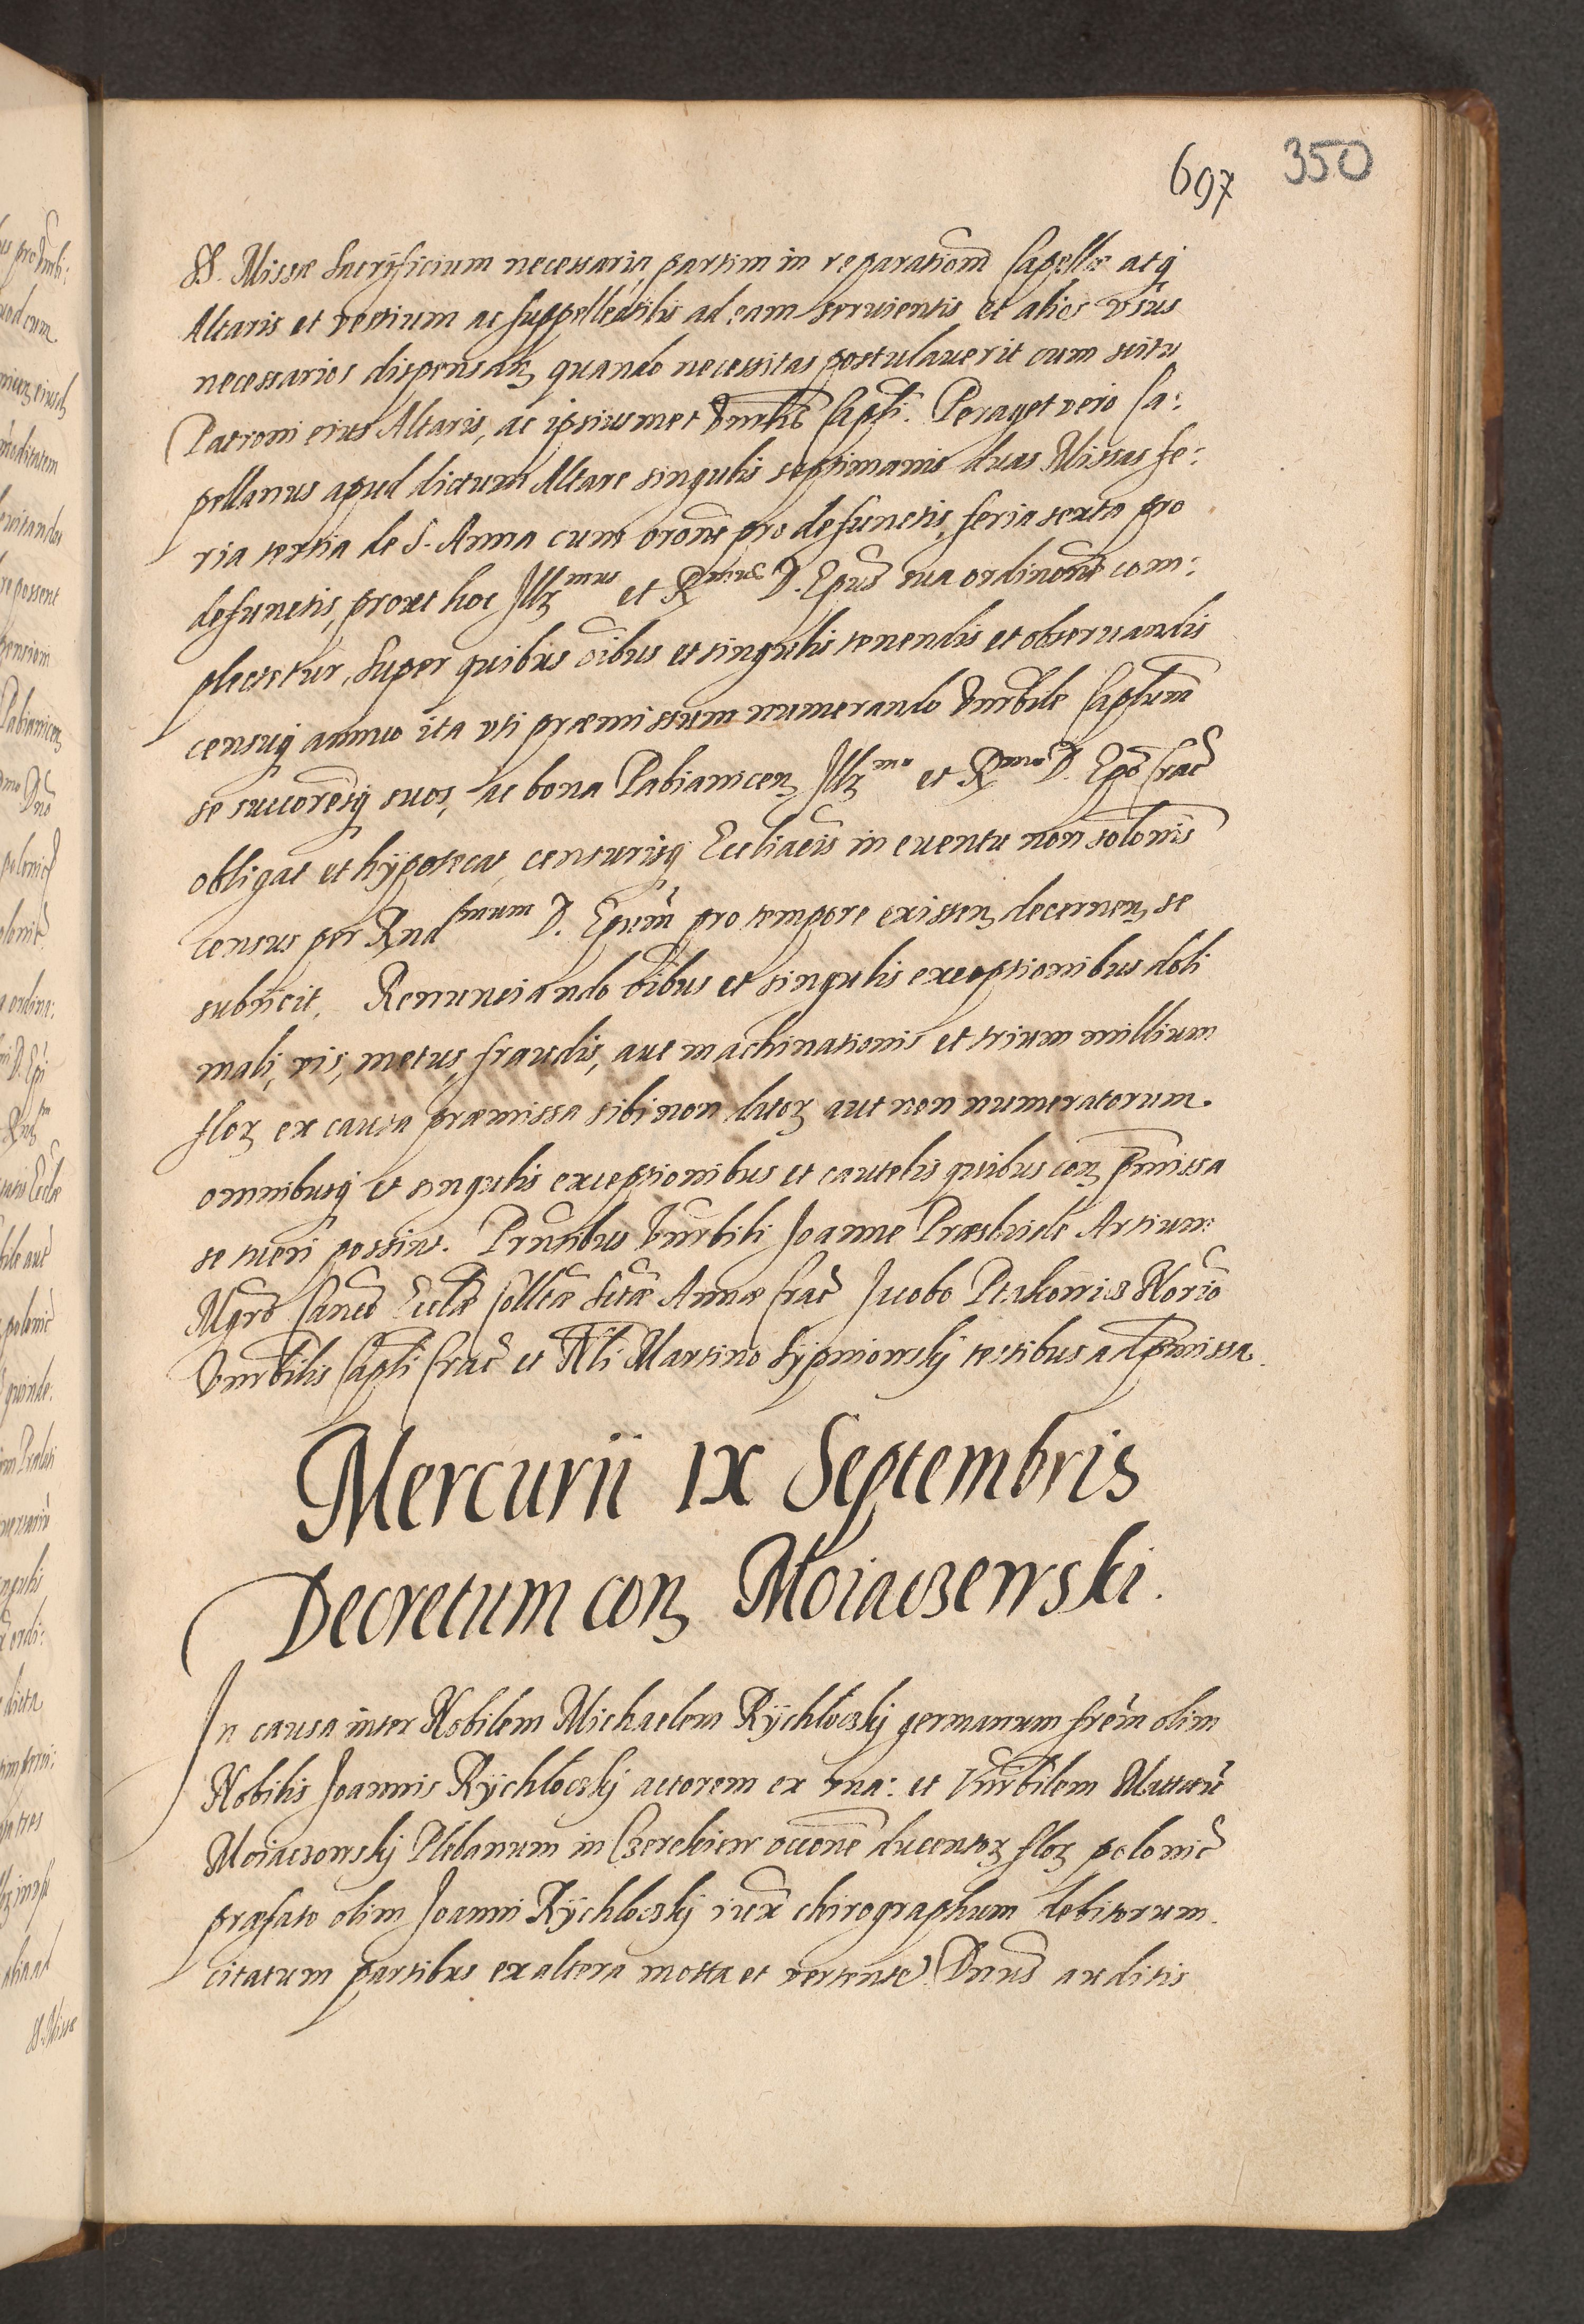 697 350
SS. Missæ Sacrificium necessaria, partim in reparationẽ Capellæ atq
Altaris et vestium ac suppellectilis ad eam seruientis et alios vsus
necessarios dispensãtȝ quando necessitas postulauerit cum scitu
Patroni eius Altaris, ac ipsiusmet Vnrbis Capli. Peraget vero Ca:
pellanus apud dictum Altare singulis septimanis duas Missas fe:
ria tertia de S. Anna cum orone pro defunctis, feria sexta pro
defunctis, prout hoc Illȝmus et Rmus D. Epus sua ordinone com:
plectetur, Super quibus oibus et singulis tenendis et obseruandis
censuq annuo ita vti præmissum numerando Vnrbile Captum
se succoresq suos, ac bona Pabianicenȝ Illȝmo et Rmo D. Epo Crac
obligat et hÿpotecat, censurisq Eccliacis in euentu non solonis
census per Rndssmum D. Epum pro tempore existenȝ decernenȝ se
subiicit. Renuntiando oibus et singulis exceptionibus doli
mali, vis, metus, fraudis, aut machinationis et trium millium
florȝ ex causa præmissa sibi non datorȝ aut non numeratorum.
omnibusq et singulis exceptionibus et cautelis quibus conȝ pmissa
se tueri possint. Pruntibus Vnrbili Joanne Præsbide Artium
Mgro Canco Eccłæ Collłæ Sctæ Annæ Crac Jacobo Ptakowicȝ Norio
Vnrbilis Capli Crac et Nłi Martino Sÿpniowskj testibus ad pmissa.
Mercurii IX Septembris
Decretum conȝ Moiaczewski.
In causa inter Nobilem Michaelem Rÿchłoczkj germanum frem olim
Nobilis Joannis Rÿchłoczkj actorem ex vna: et Vnrbilem Mattæū
Moiaczowskj Plebanum in Czerekiew occone ducentorȝ florȝ polonic
præfato olim Joanni Rÿchłoczkj iux chirographum debitorum.
citatum partibus ex altera motta et vertente. Dnus auditis